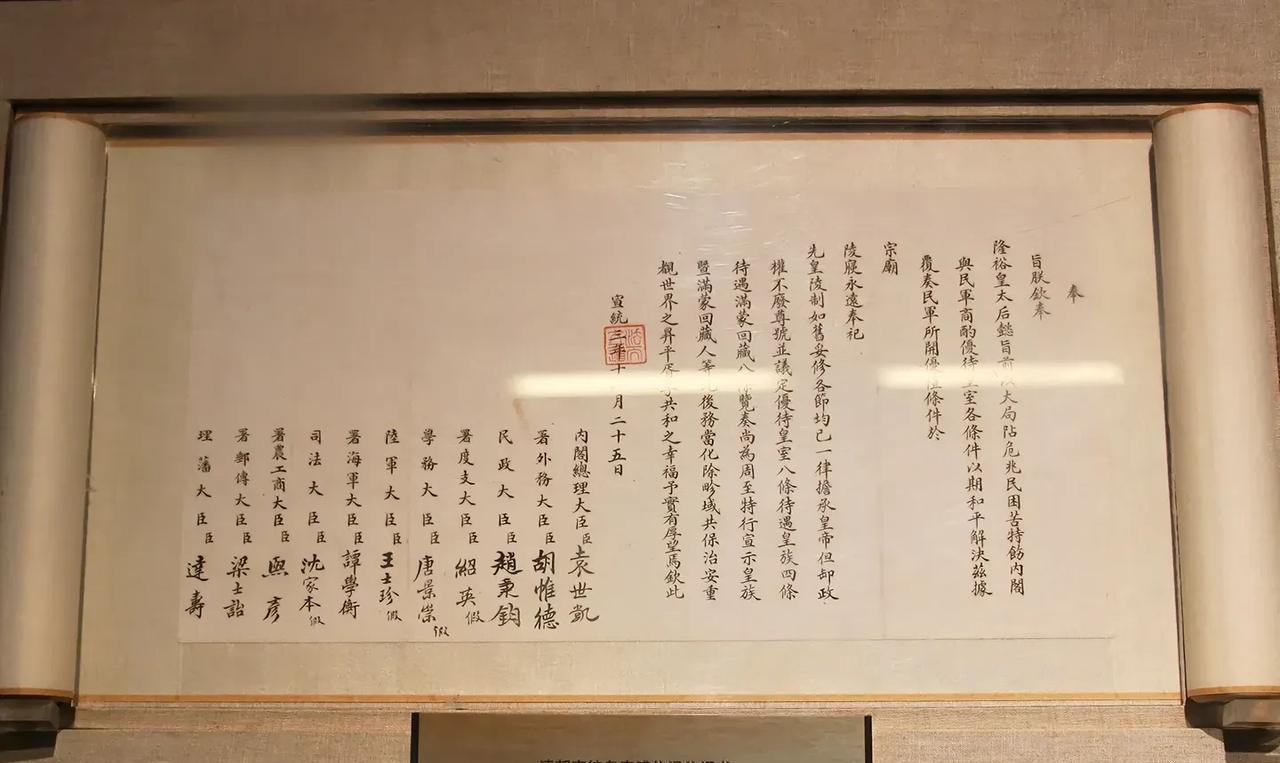 奉
旨朕欽奉
隆裕皇太后懿旨前以大局阽危兆民困苦特飭內閣
與民軍商酌優待皇室各條件以期和平解決茲據
覆奏民軍所開優禮條件於
宗廟
陵寢永遠奉祀
先皇陵制如舊妥修各節均已一律擔承皇帝但卸政
權不廢尊號並議定優待皇室八條待遇皇族四條
待遇滿蒙回藏七條覽奏尚為周至特行宣示皇族
暨滿蒙回藏人等此後務當化除畛域共保治安重
覩世界之昇平胥享共和之幸福予實有厚望焉欽此
宣統三年十二月二十五日
內閣總理大臣臣袁世凱
署外務大臣臣胡惟德
民政大臣臣趙秉鈞
署度支大臣臣紹英假
學務大臣臣唐景崇假
陸軍大臣臣王士珍假
署海軍大臣臣譚學衡
司法大臣臣沈家本假
署農工商大臣臣熙彥
署郵傳大臣臣梁士詒
理藩大臣臣達壽